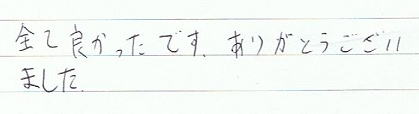 全て良かったです。ありがとうござい
ました。